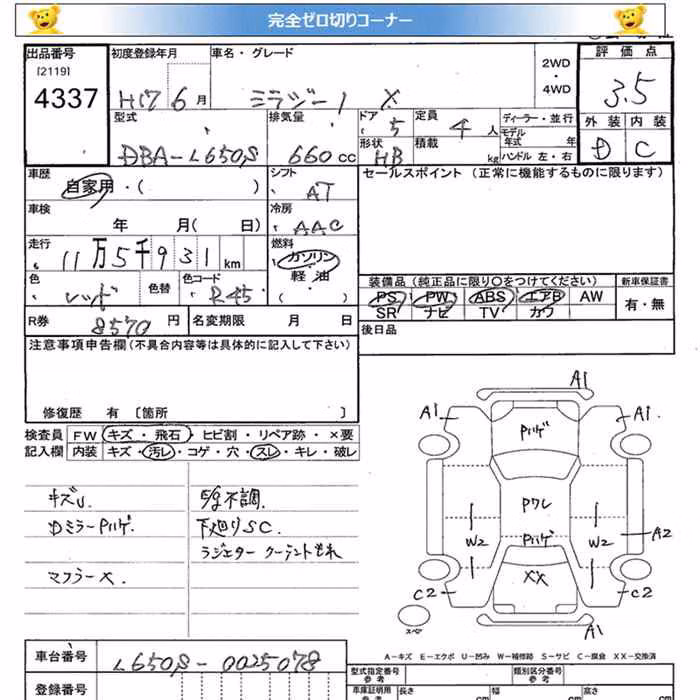 完全ゼロ切りコーナー
出品番号 初度登録年月 車名・グレード 評価点
[2119]
4337 H17 6月 ミラジーノ X 2WD ・ 4WD 3.5
型式 排気量 ドア 5 定員 4人 ディーラー・並行 外装 内装
モデル年式 年
DBA-L650S 660cc 形状 HB 積載 kg ハンドル 左・右 D C
車歴 シフト セールスポイント (正常に機能するものに限ります)
自家用・( ) AT
車検 冷房
年 月( 日) AAC
走行 燃料
11万5千931km ガソリン
軽・油
色 色替 色コード 装備品 (純正品に限り○をつけてください) 新車保証書
レッド R45 ( ) PS PW ABS エアB AW 有・無
SR ナビ TV カワ
R券 8570円 名変期限 月 日 後日品
注意事項申告欄(不具合内容等は具体的に記入して下さい)
修復歴 有 [箇所 ]
検査員 FW キズ・飛石・ヒビ割・リペア跡・×要
記入欄 内装 キズ・汚レ・コゲ・穴・スレ・キレ・破レ
キズU
Dミラー Pハゲ
マフラー×
下廻りSC.
ラジエター クーラント
A1
A1 A1
Pハゲ
Pワレ
A2
W2 Pハゲ W2
XX
C2 C2
スペア
A1
A-キズ E-エクボ U-凹み W-補修跡 S-サビ C-腐食 XX-交換済
車台番号 L650S-0025078
型式指定番号 参考 類別区分番号 参考
登録番号 車庫証明用 参考 長さ cm 幅 cm 高さ cm